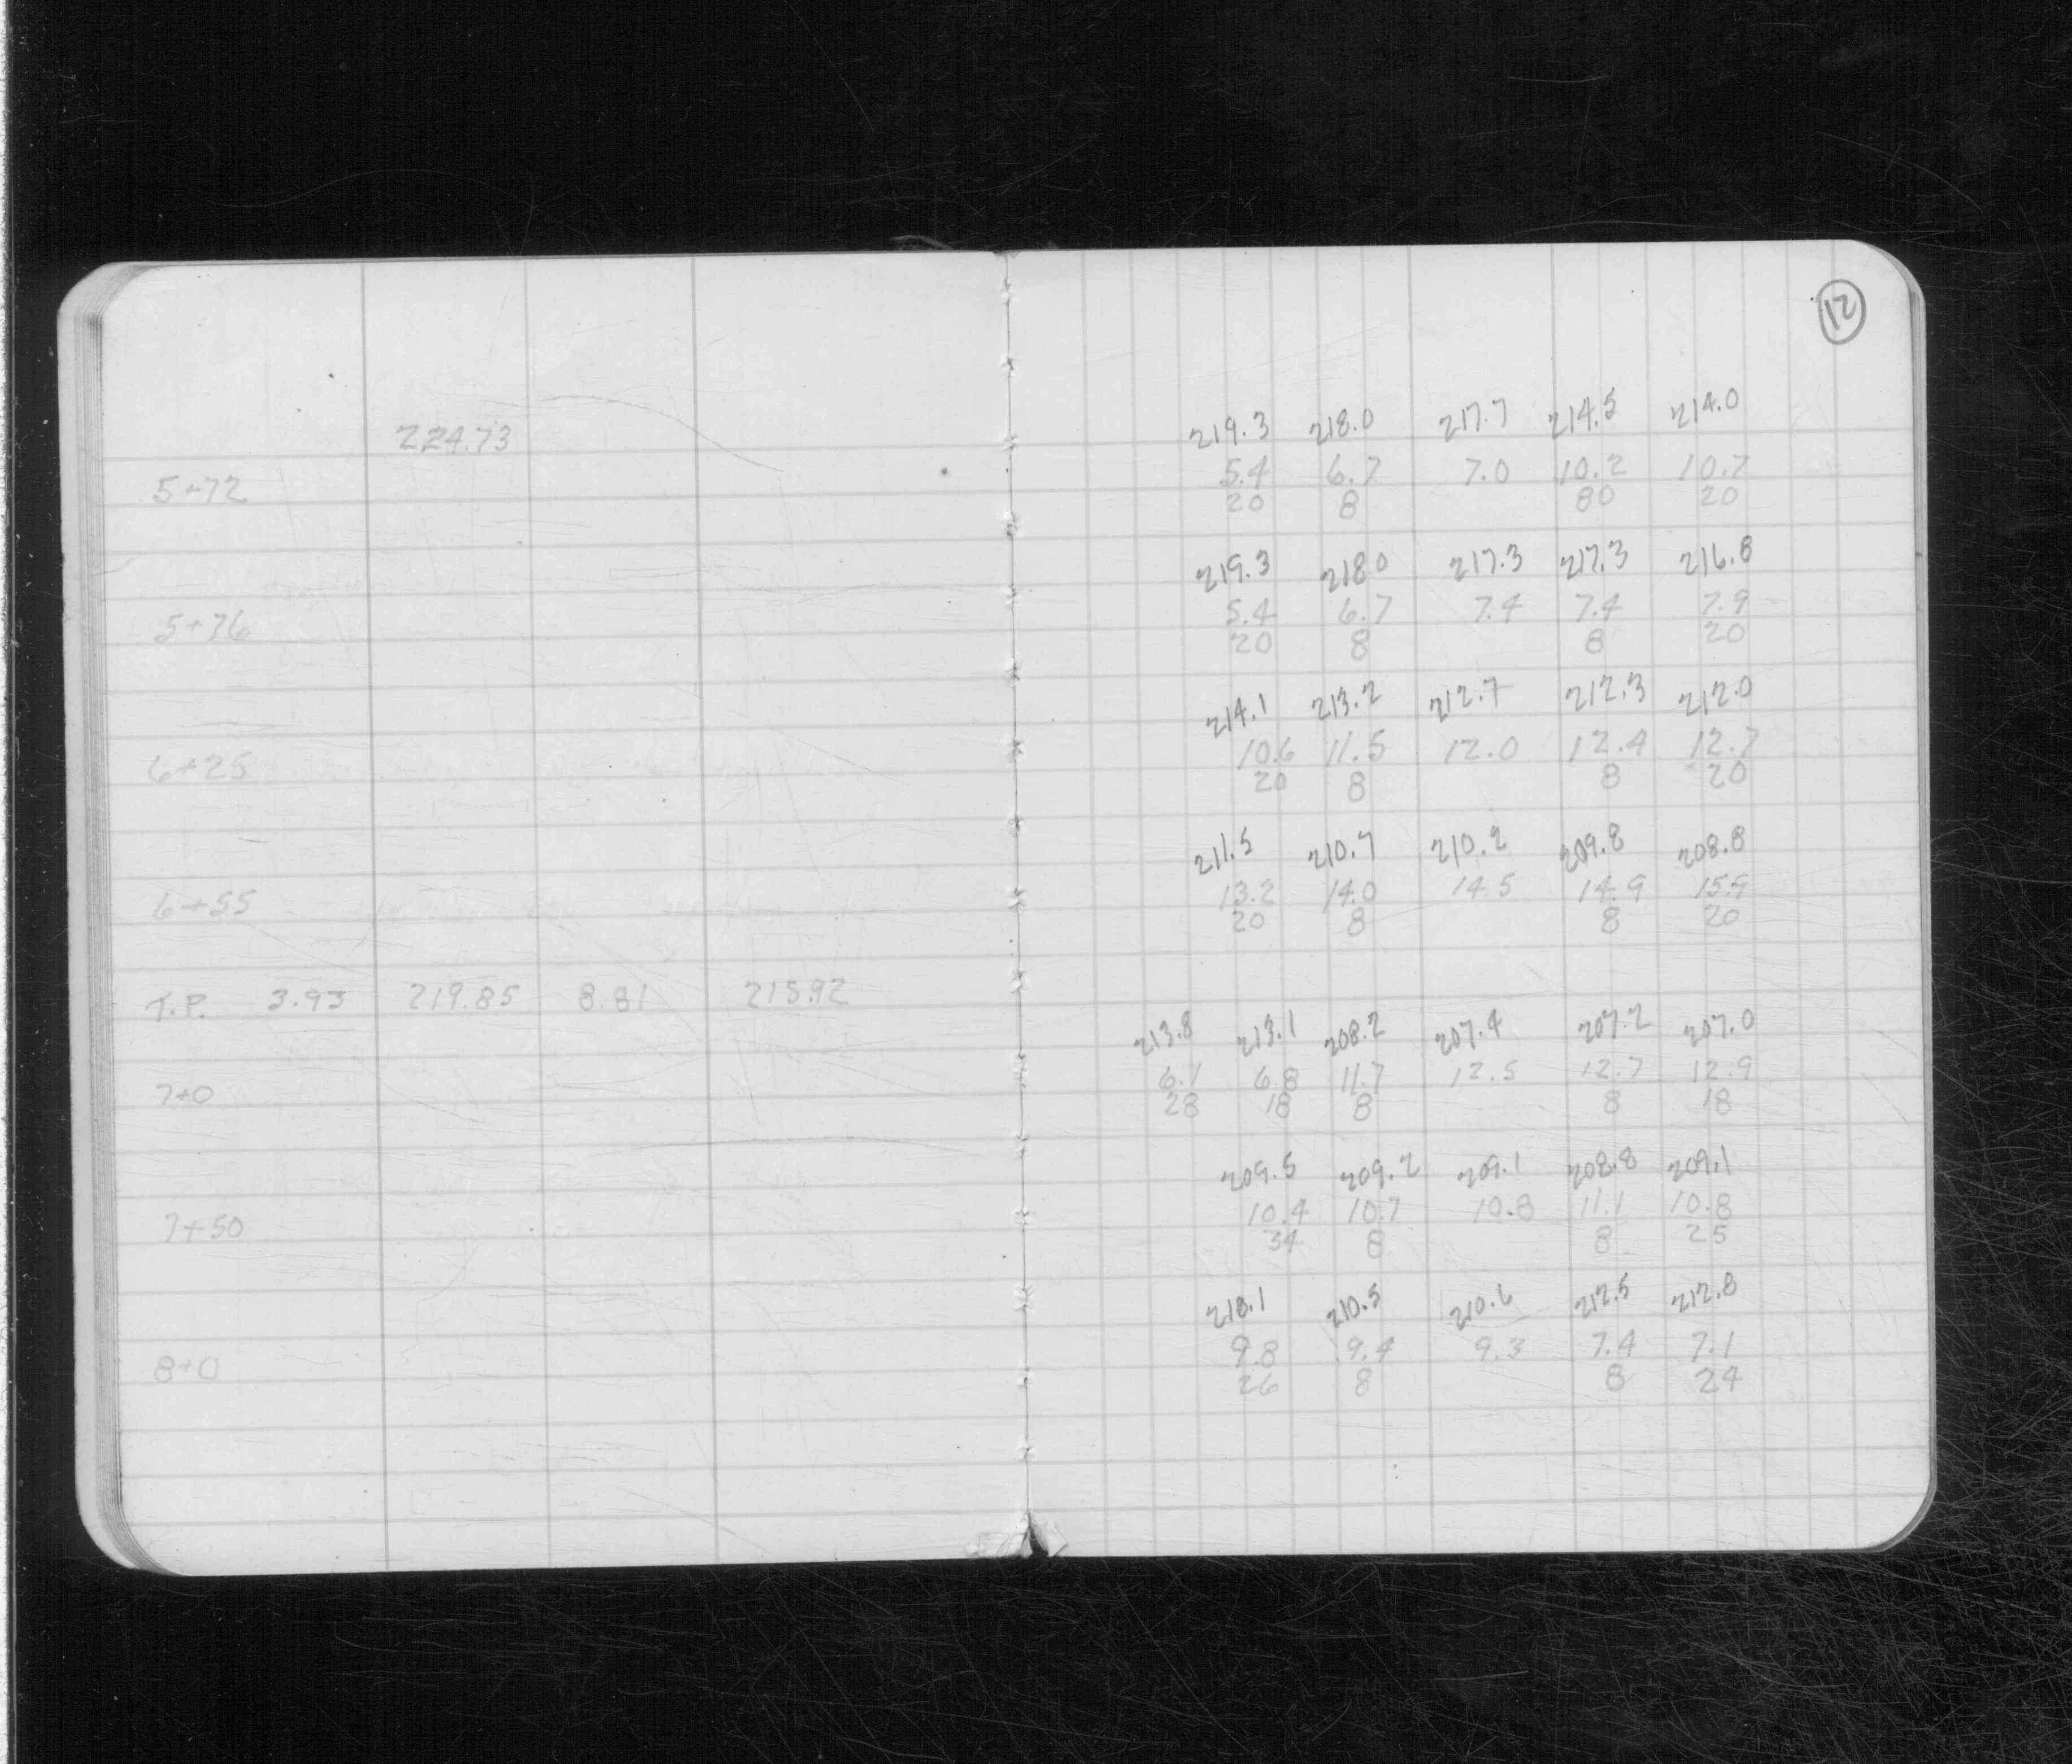 12
224.73
219.3 218.0 217.7 214.5 214.0
5+72 5.4 6.7 7.0 10.2 10.7
20 8 80 20
219.3 218.0 217.3 217.3 216.8
5+76 5.4 6.7 7.4 7.4 7.9
20 8 8 20
214.1 213.2 212.7 212.3 212.0
6+25 10.6 11.5 12.0 12.4 12.7
20 8 8 20
211.5 210.7 210.2 209.8 208.8
6+55 13.2 14.0 14.5 14.9 15.9
20 8 8 20
T.P. 3.93 219.85 8.81 215.92
213.8 213.1 208.2 207.4 207.2 207.0
7+0 6.1 6.8 11.7 12.5 12.7 12.9
28 18 8 8 18
209.5 209.2 209.1 208.8 209.1
7+50 10.4 10.7 10.8 11.1 10.8
34 8 8 25
210.1 210.5 210.6 212.5 212.8
8+0 9.8 9.4 9.3 7.4 7.1
26 8 8 24